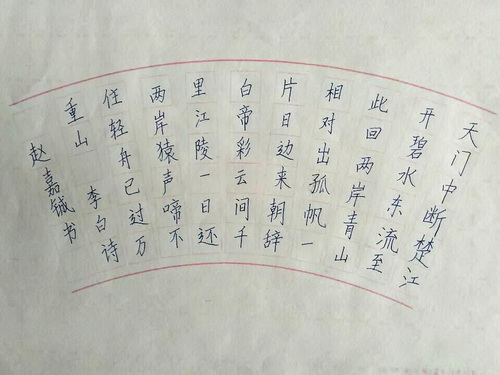 天门中断楚江
开碧水东流至
此回两岸青山
相对出孤帆一
片日边来朝辞
白帝彩云间千
里江陵一日还
两岸猿声啼不
住轻舟已过万
重山 李白诗
赵嘉铖书